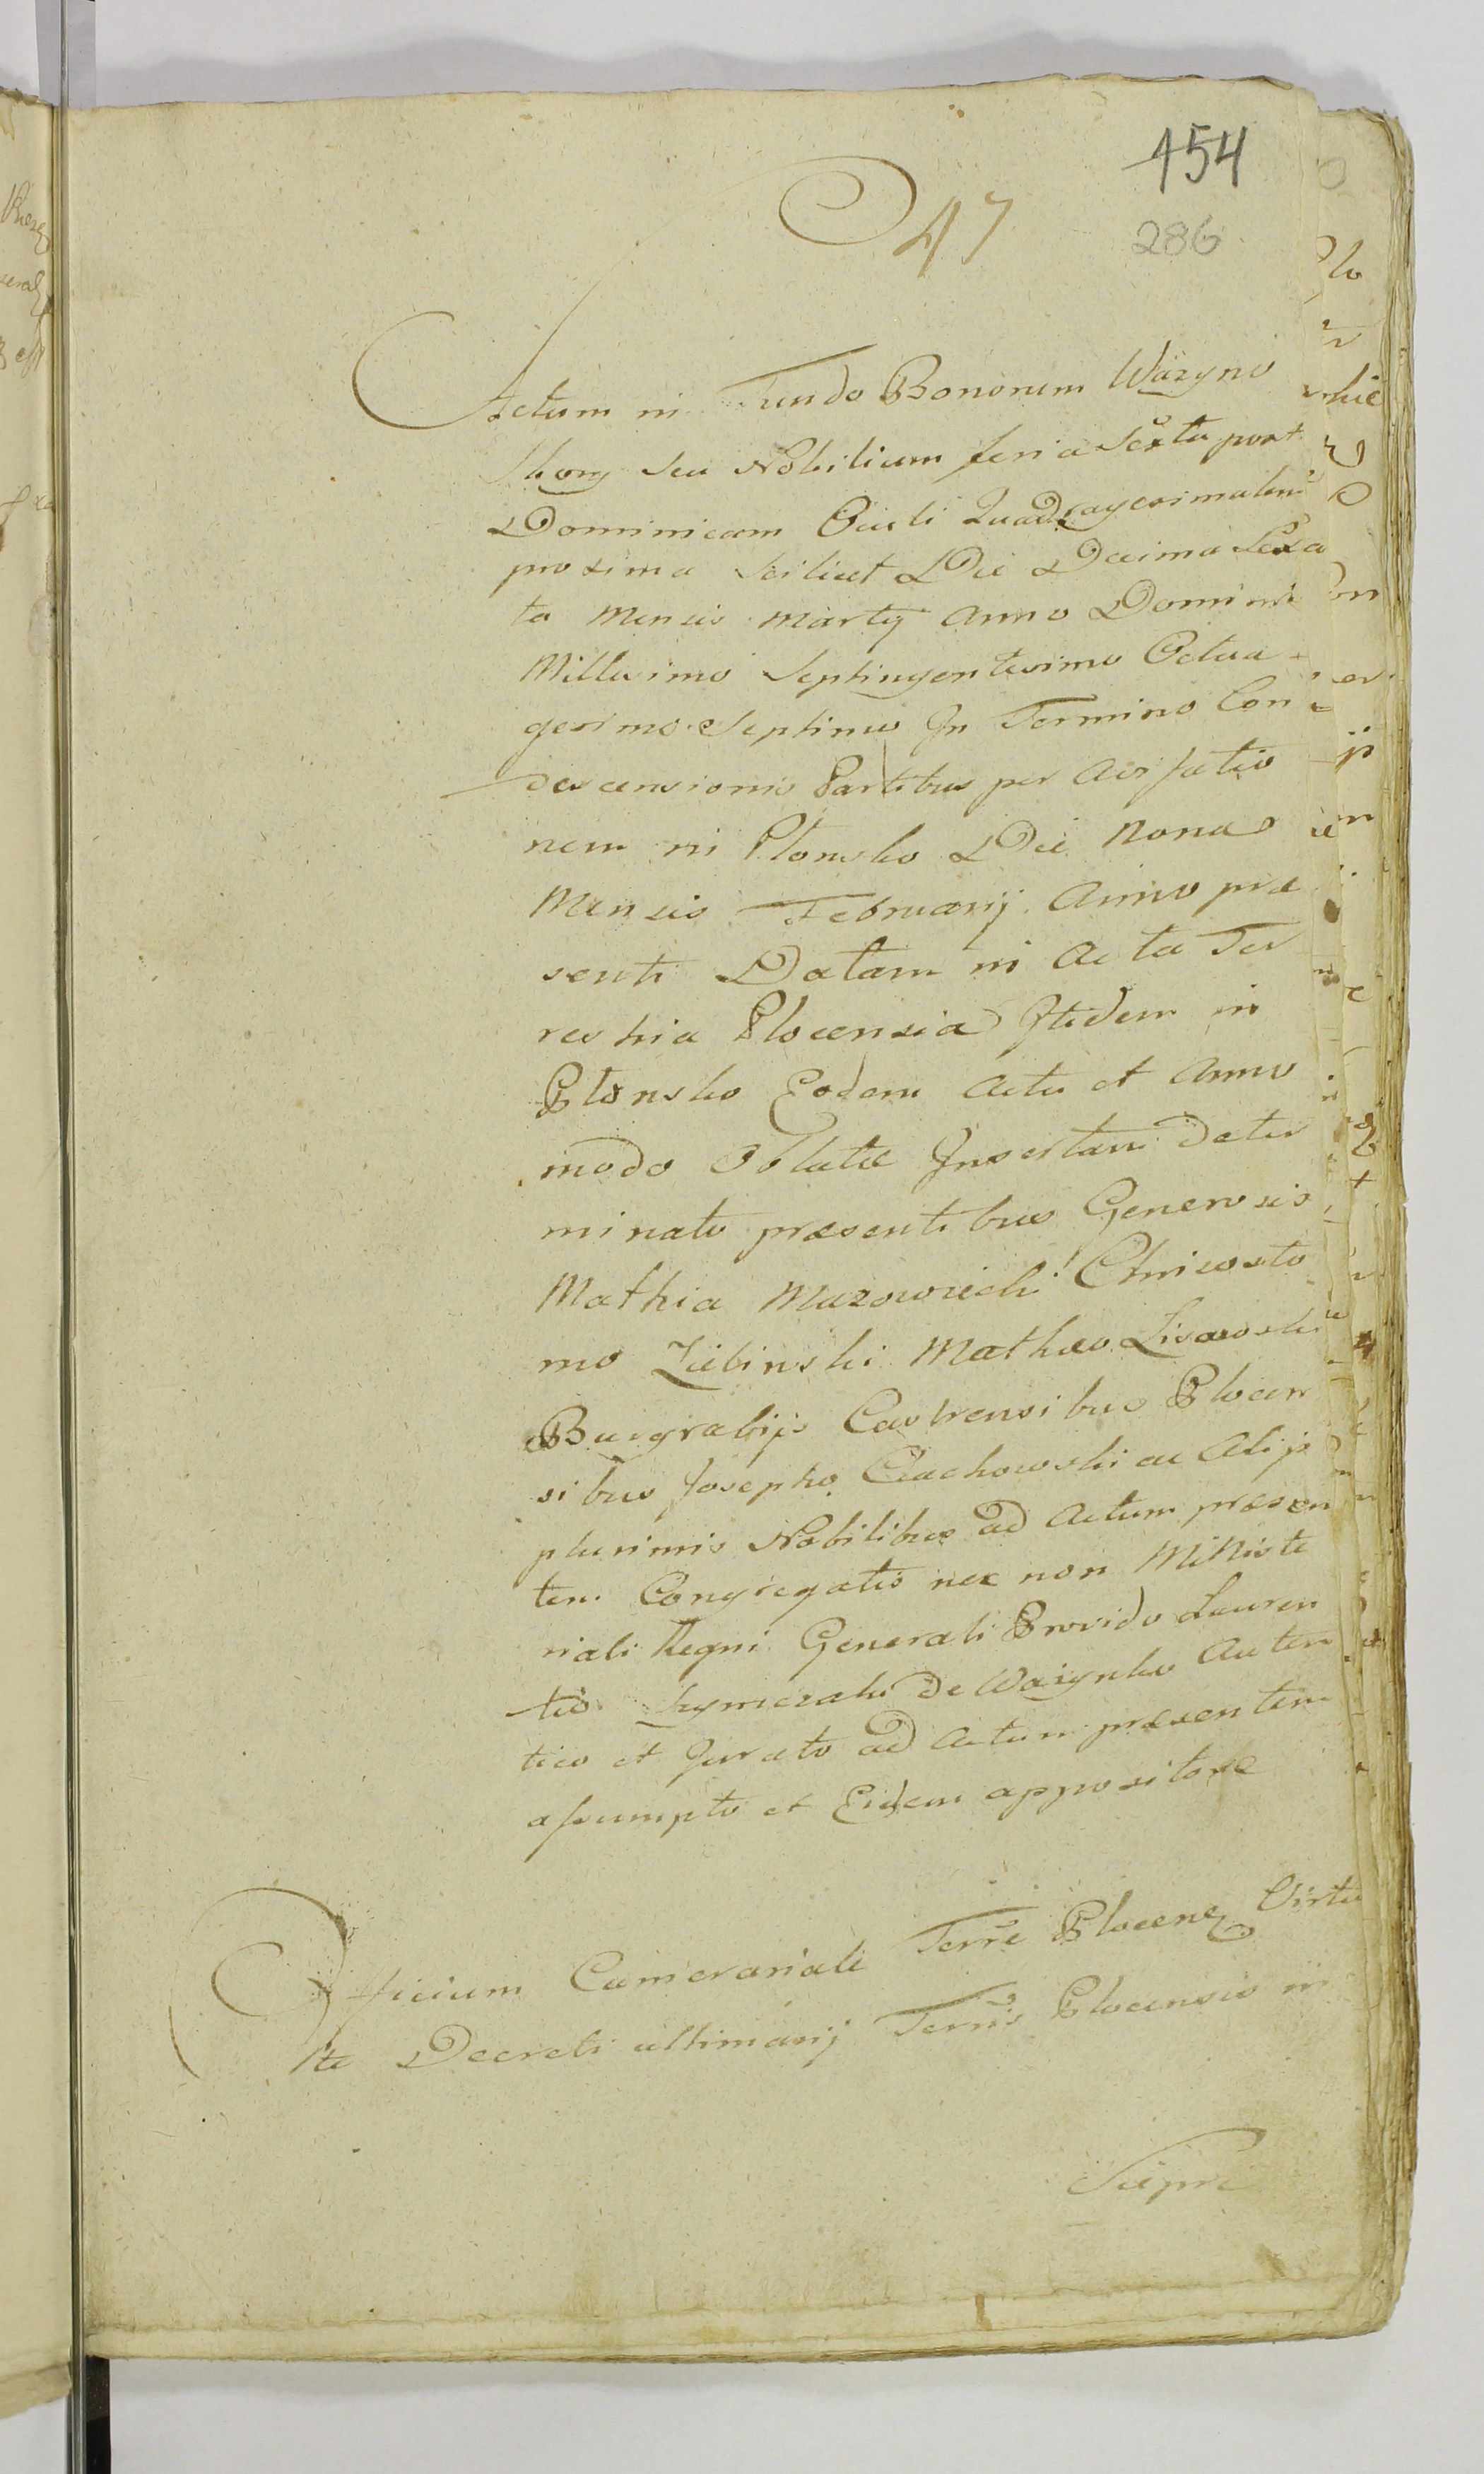 154
47
286
Actum in Fundo Bonorum Wazyno
Skory seu Nobilium feria Sexta post
Dominicam Oculi Quadragesimalem
proxima scilicet Die Decima Sexa
ta Mensis Martij Anno Domini
Millesimo Septingentesimo Octua
gesimo Septimo In Termino Con
descensionis Partibus per Avisatio
nem in Plonsko Die Nona
Mensis Februarij Anno præ
senti Datam in Acta Ter
restria Plocensia Itidem in
Plonsko Eodem Actu et Anno
modo Oblatæ Insertam deter
minato præsentibus Generosis
Mathia Mazowiecki Chrisosto
mo Zielinski Mathæo Lisowski
Burgrabijs Castrensibus Plocen
sibus Josepho Czachowski ac Alijs
plurimis Nobilibus ad Actum præsen
tem Congregatis nec non Ministe
riali Regni Generali Provido Lauren
tio de Wazynko Auten
tico et Jurato ad Actum præsentem
assumpto et Eidem appositore
Officium Camerariale Terræ Plocens Virtu
te Decreti ultimarij Terris Plocensis in
Supre